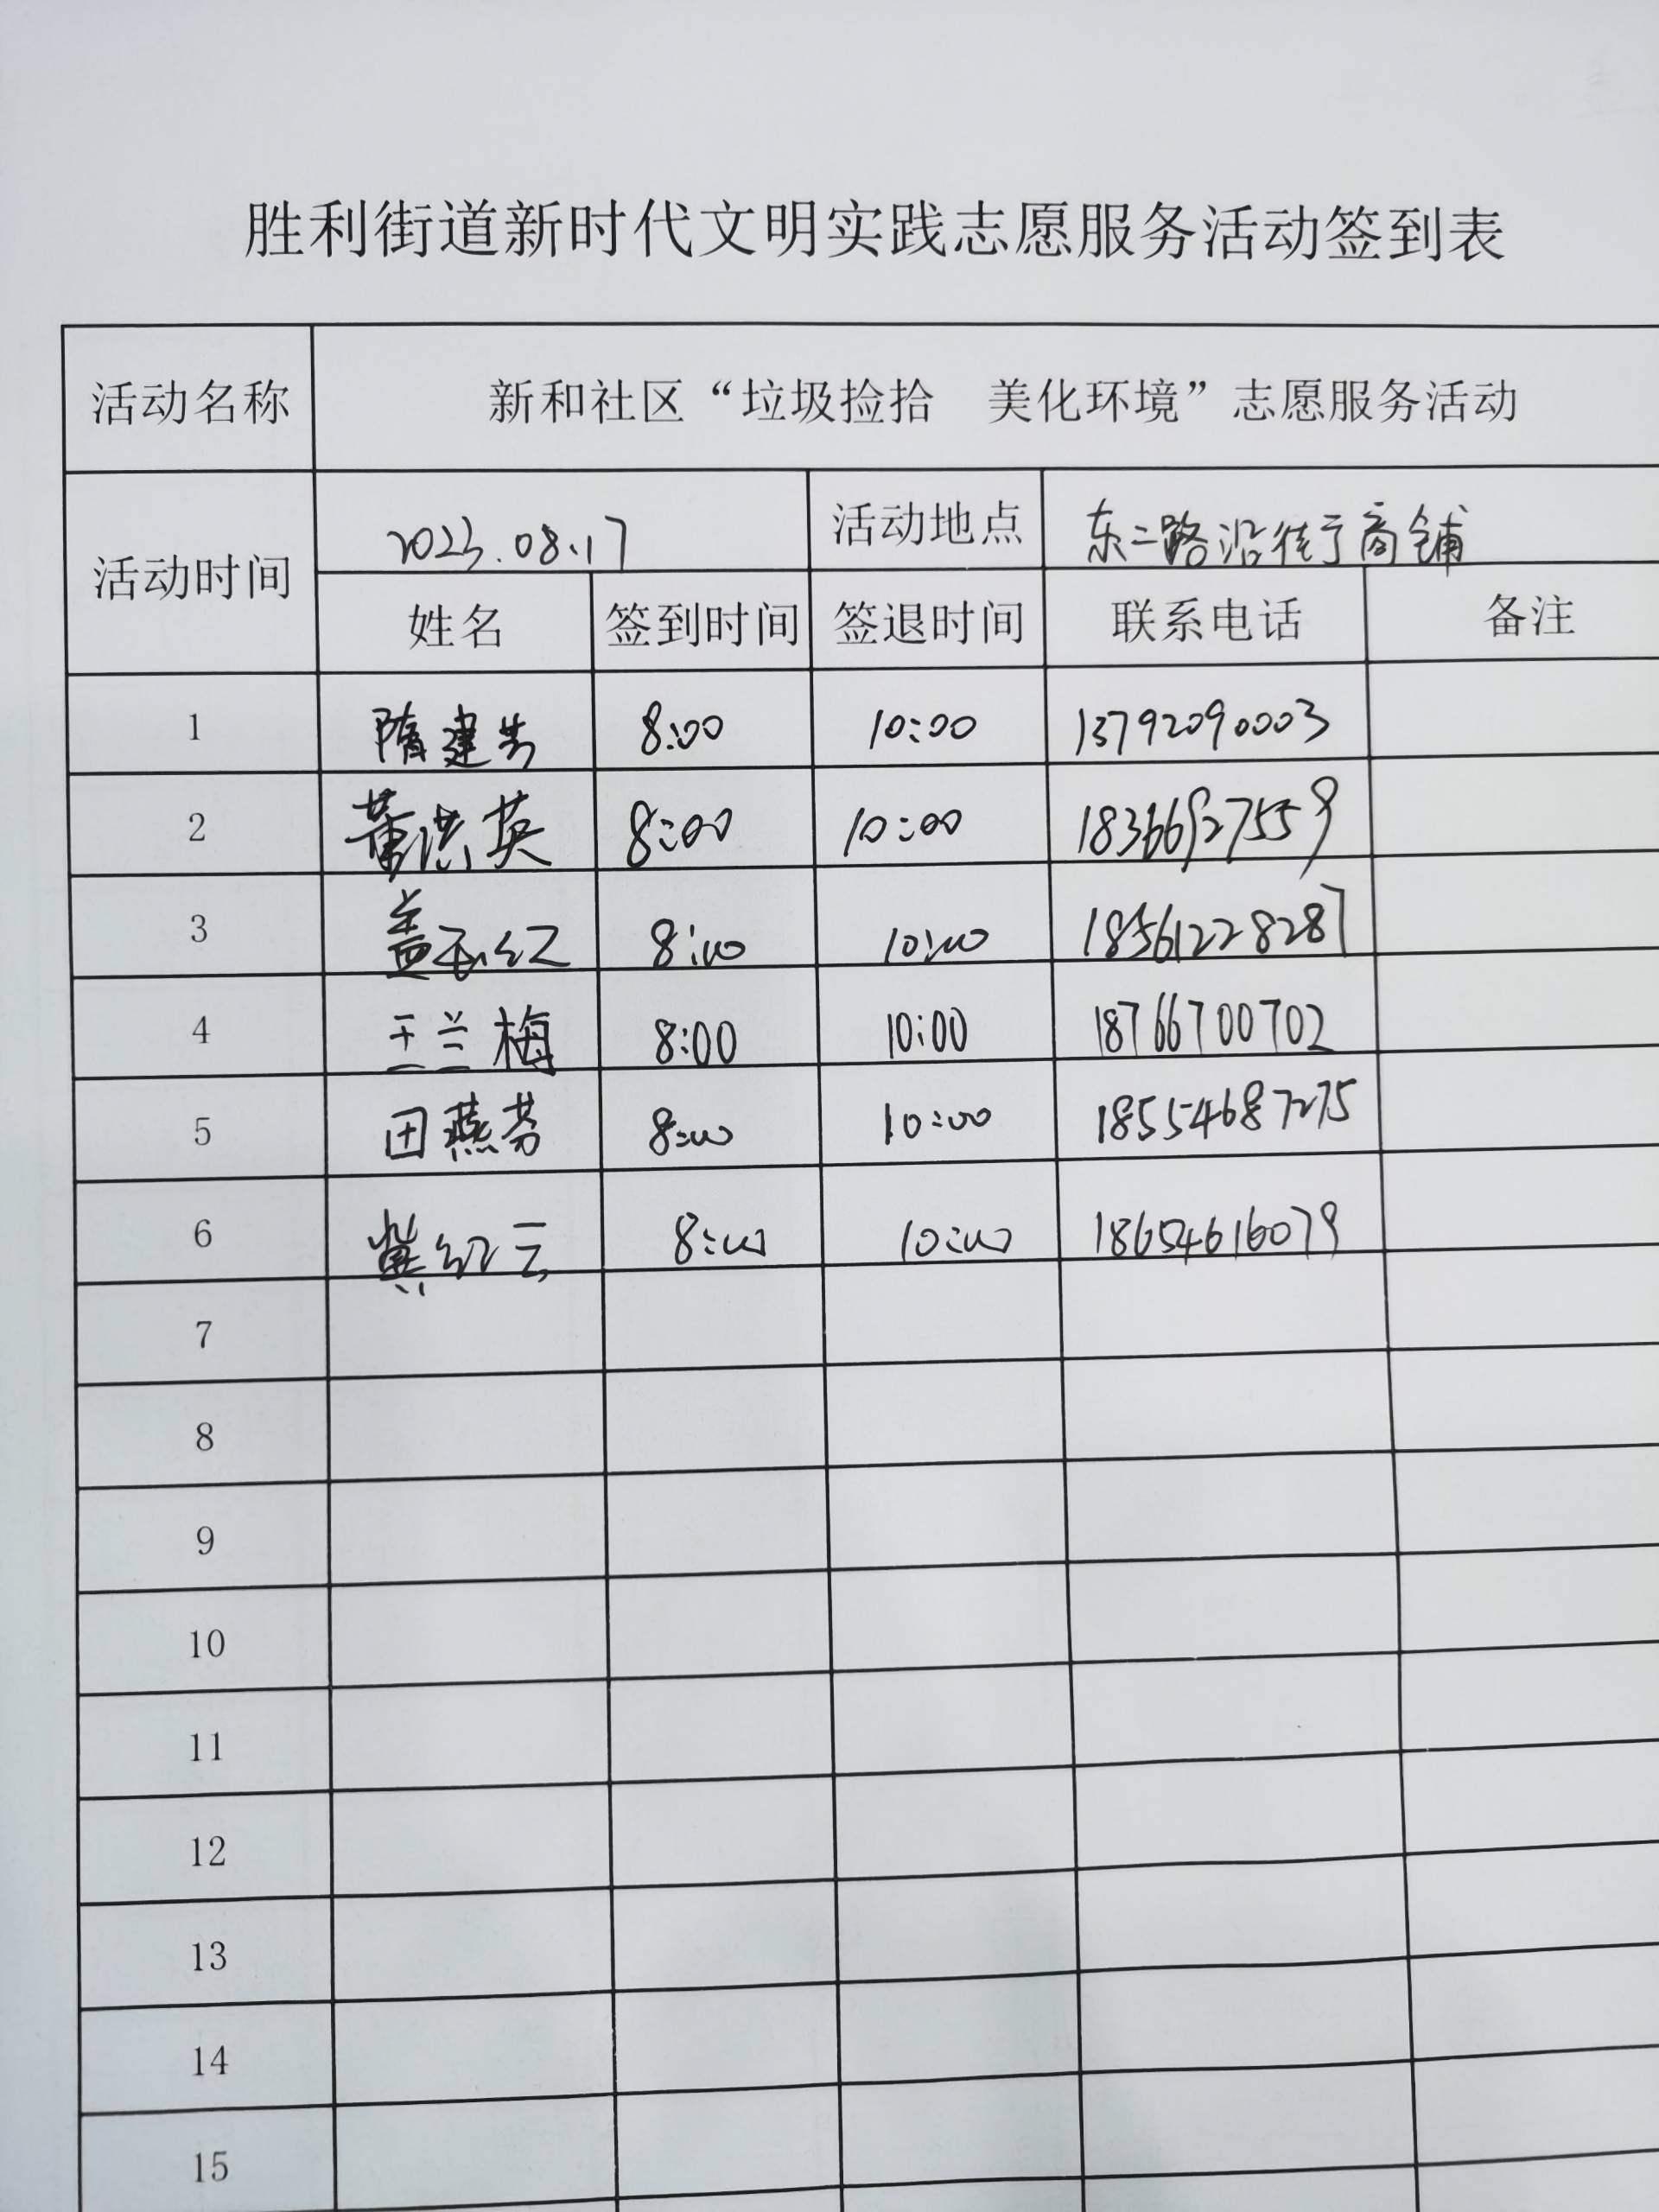 胜利街道新时代文明实践志愿服务活动签到表
活动名称 新和社区“垃圾捡拾 美化环境”志愿服务活动
活动时间 2023.08.17 活动地点 东二路沿街商铺
姓名 签到时间 签退时间 联系电话 备注
1 隋建 8:00 10:00 13792090003
2 董洪英 8:00 10:00 18366927559
3 盖玉红 8:00 10:00 18561228287
4 王兰梅 8:00 10:00 18766700702
5 田燕芬 8:00 10:00 18554687275
6 冀红云 8:00 10:00 18654616079
7
8
9
10
11
12
13
14
15